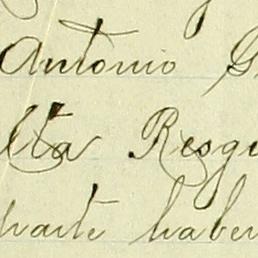 Antonio G
lta Resgu
parte haber